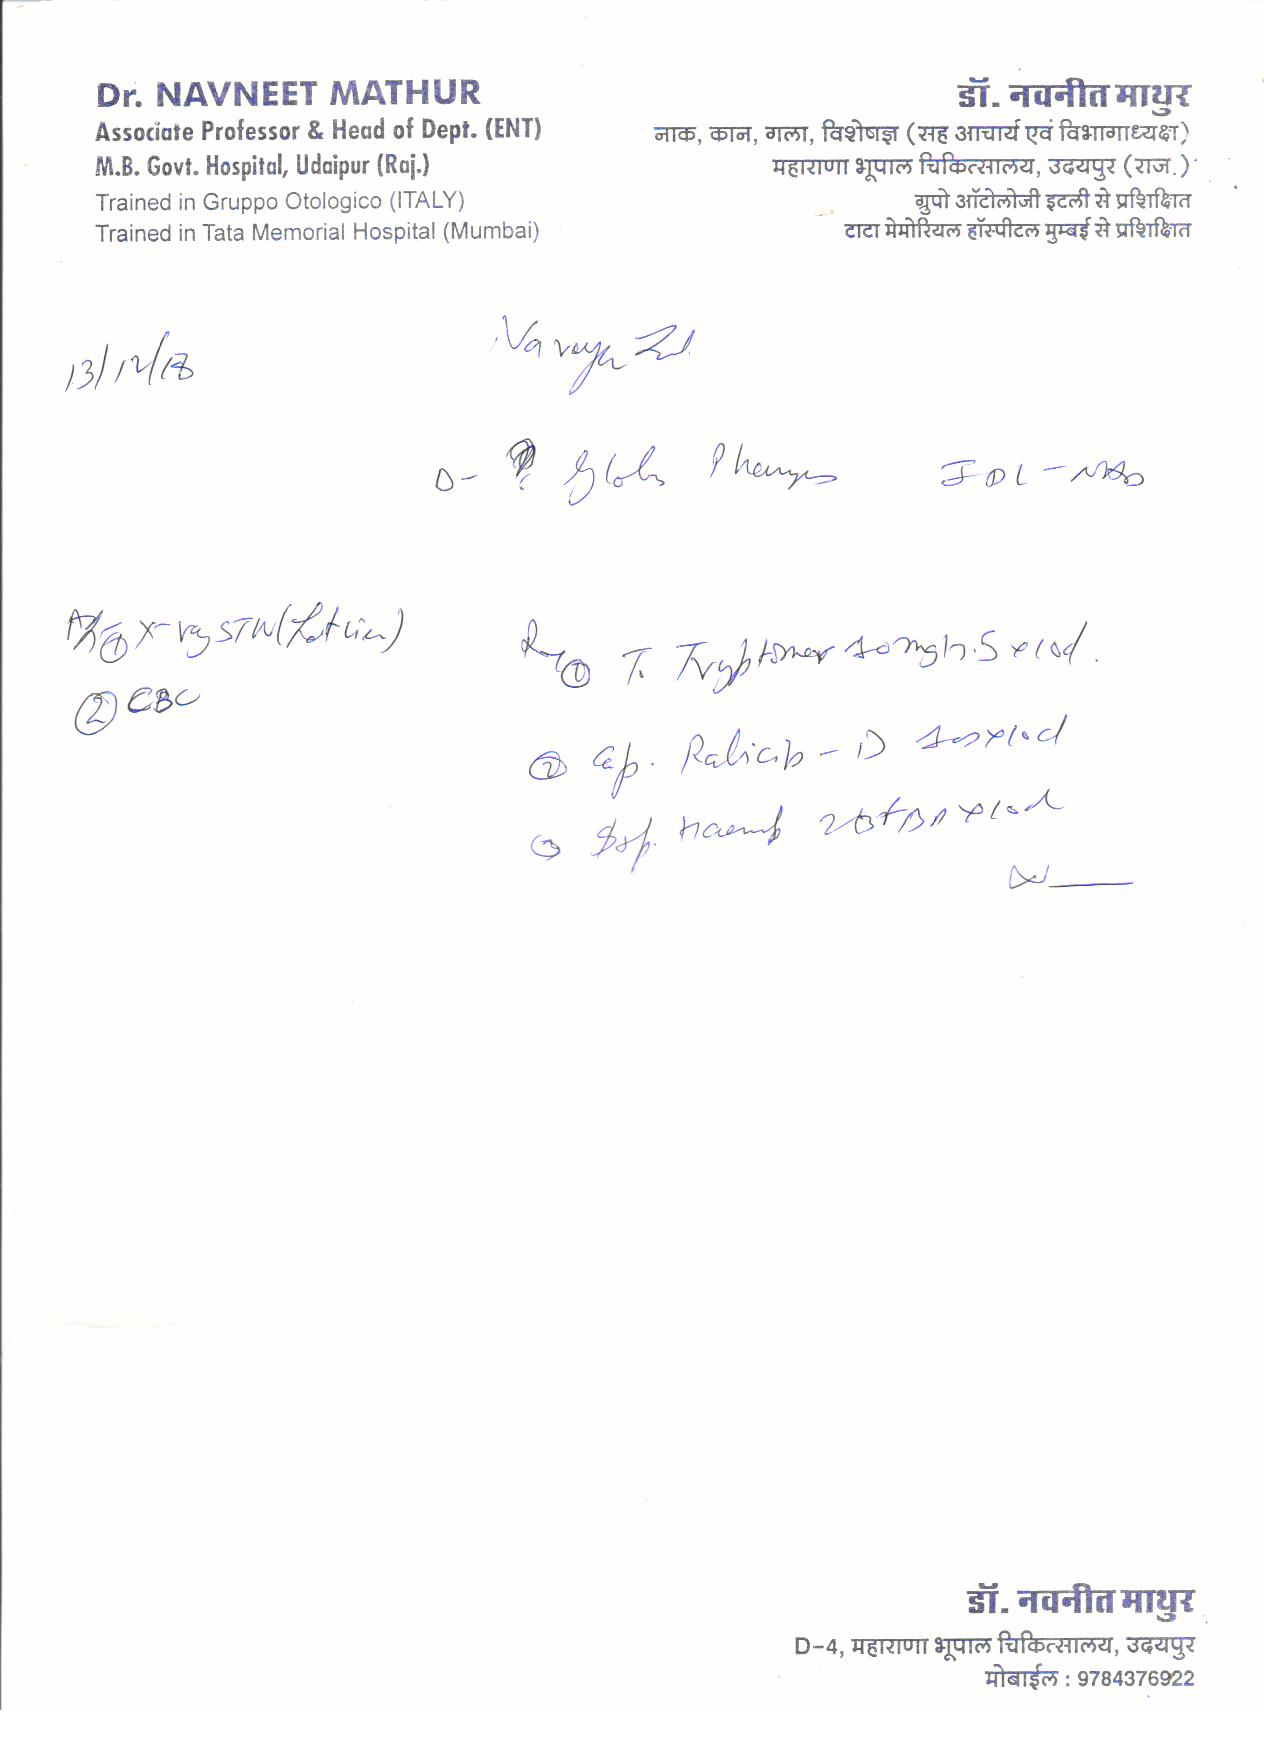 Dr. NAVNEET MATHUR
Associate Professor & Head of Dept. (ENT)
M.B. Govt. Hospital, Udaipur (Raj.)
Trained in Gruppo Otologico (ITALY)
Trained in Tata Memorial Hospital (Mumbai)
डॉ. नवनीत माथुर
नाक, कान, गला, विशेषज्ञ (सह आचार्य एवं विभागाध्यक्ष)
महाराणा भूपाल चिकित्सालय, उदयपुर (राज.)
ग्रुपो ऑटोलोजी इटली से प्रशिक्षित
टाटा मेमोरियल हॉस्पीटल मुम्बई से प्रशिक्षित
13/12/18
D- ? Globus Pharyngeus IDL - NAD
① X-ray STN (Lat view)
② CBC
Rx ① T. Tryptomer 10mg h.s x10d.
② Cap. Rabicip - D 1 x10d
③ Syp. 2 x10d
डॉ. नवनीत माथुर
D-4, महाराणा भूपाल चिकित्सालय, उदयपुर
मोबाईल : 9784376922